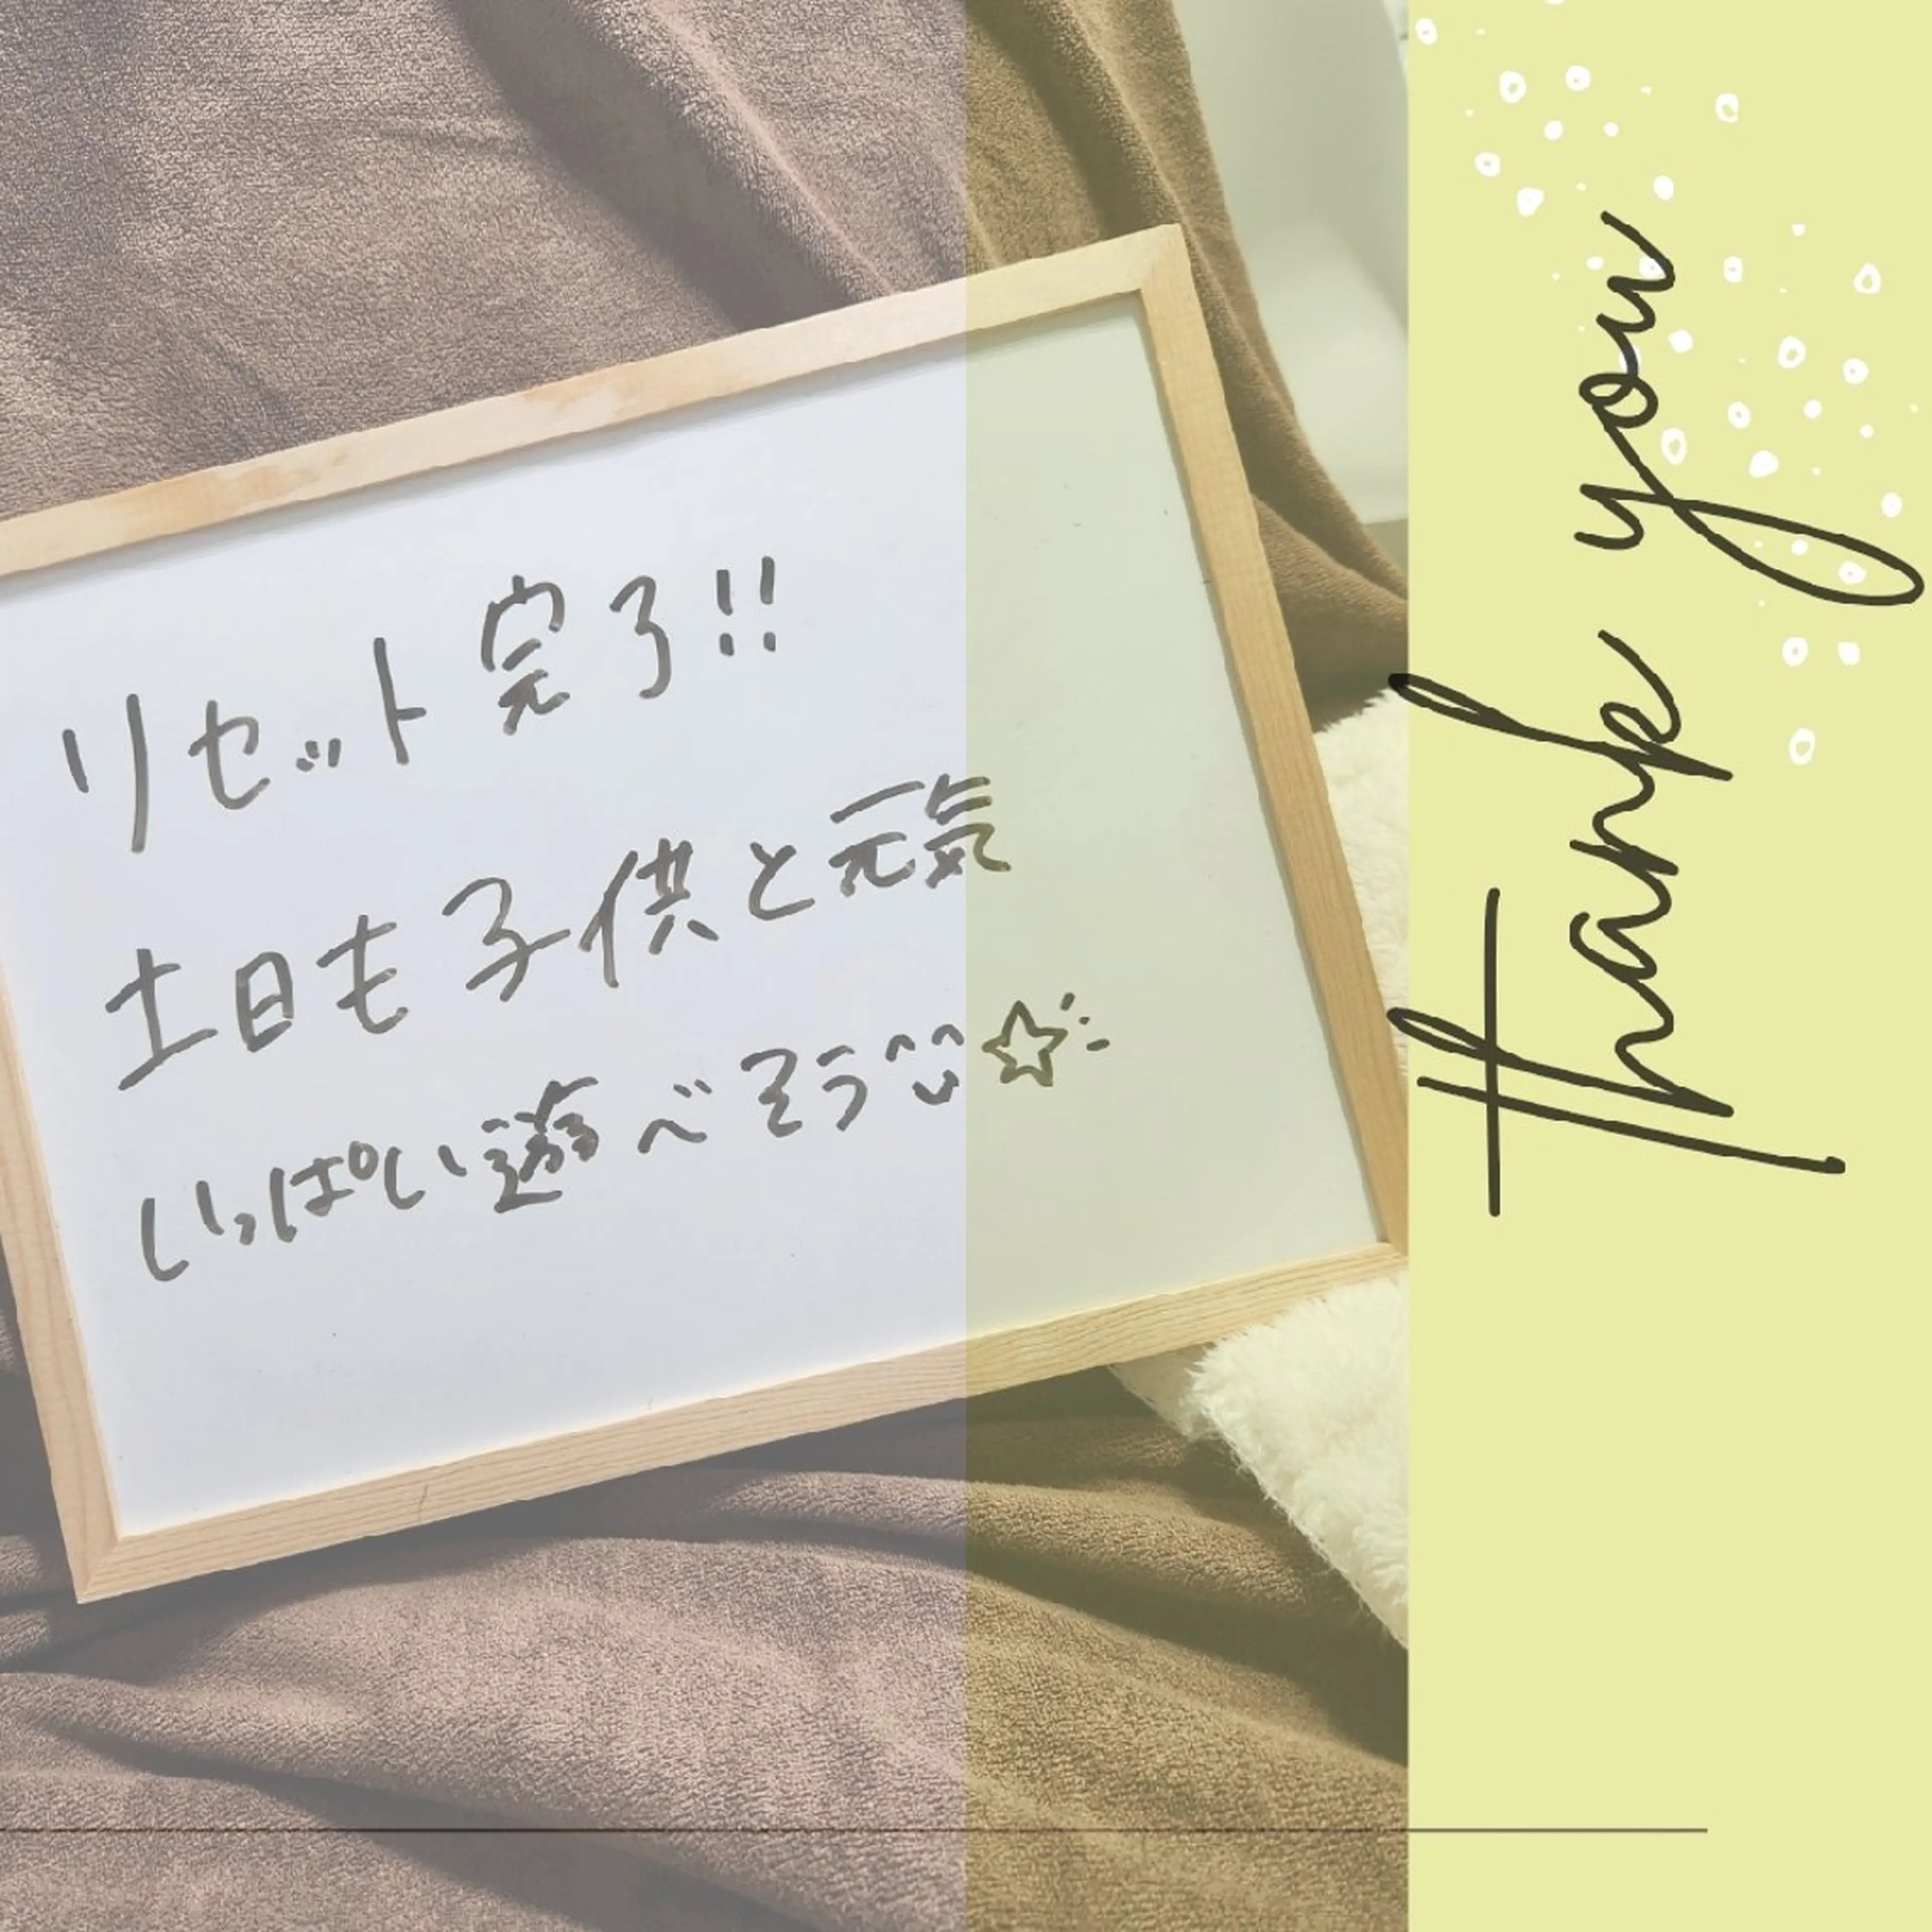 リセット完了!!
土日も子供と元気
いっぱい遊べそう^^☆
thank you